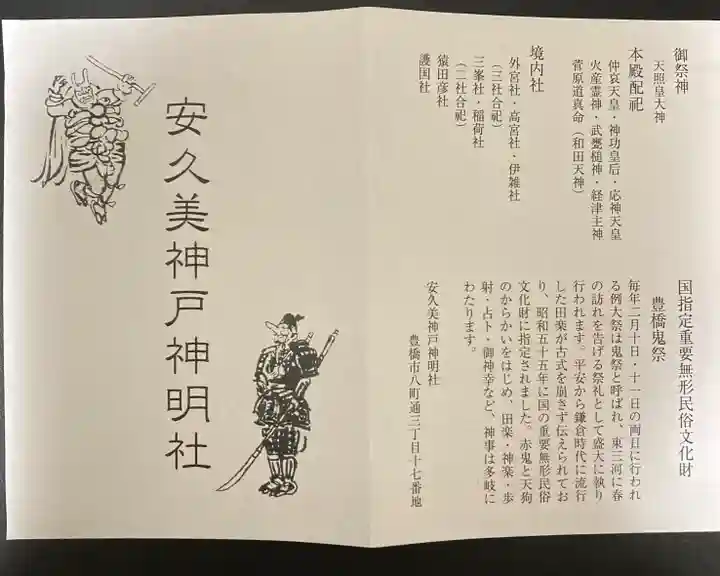 御祭神
天照皇大神
本殿配祀
仲哀天皇・神功皇后・応神天皇
火産霊神・武甕槌神・経津主神
菅原道真命（和田天神）
境内社
外宮社・高宮社・伊雑社
（三社合祀）
三峯社・稲荷社
（二社合祀）
猿田彦社
護国社
国指定重要無形民俗文化財
豊橋鬼祭
毎年二月十日・十一日の両日に行われ
る例大祭は鬼祭と呼ばれ、東三河に春
の訪れを告げる祭礼として盛大に執り
行われます。平安から鎌倉時代に流行
した田楽が古式を崩さず伝えられてお
り、昭和五十五年に国の重要無形民俗
文化財に指定されました。赤鬼と天狗
のからかいをはじめ、田楽・神楽・歩
射・占卜・御神幸など、神事は多岐に
わたります。
安久美神戸神明社
豊橋市八町通三丁目十七番地
安久美神戸神明社